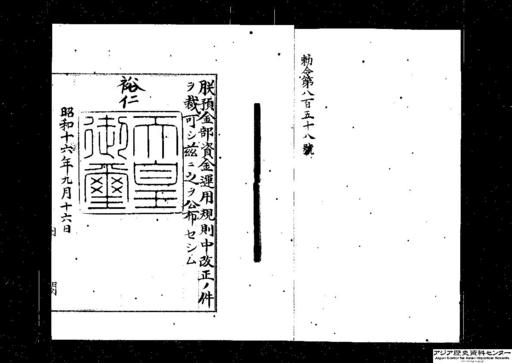 勅令第八百五十八號
朕預金部資金運用規則中改正ノ件
ヲ裁可シ茲ニ之ヲ公布セシム
裕仁
天皇御璽
昭和十六年九月十六日
アジア歴史資料センター
Japan Center for Asian Historical Records